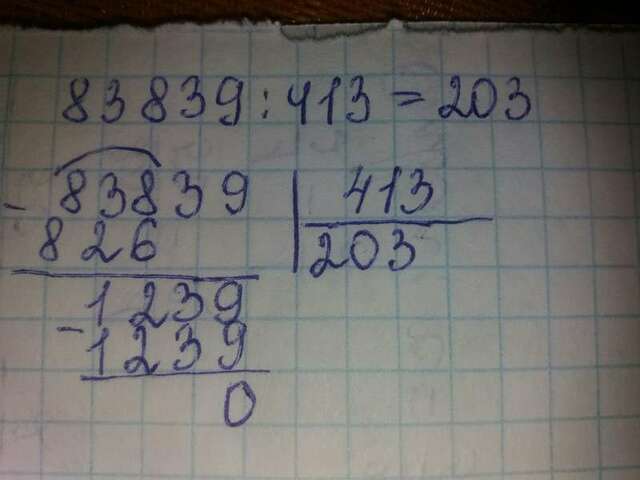 83839:413=203
- 83839 | 413
826 203
- 1239
1239
0